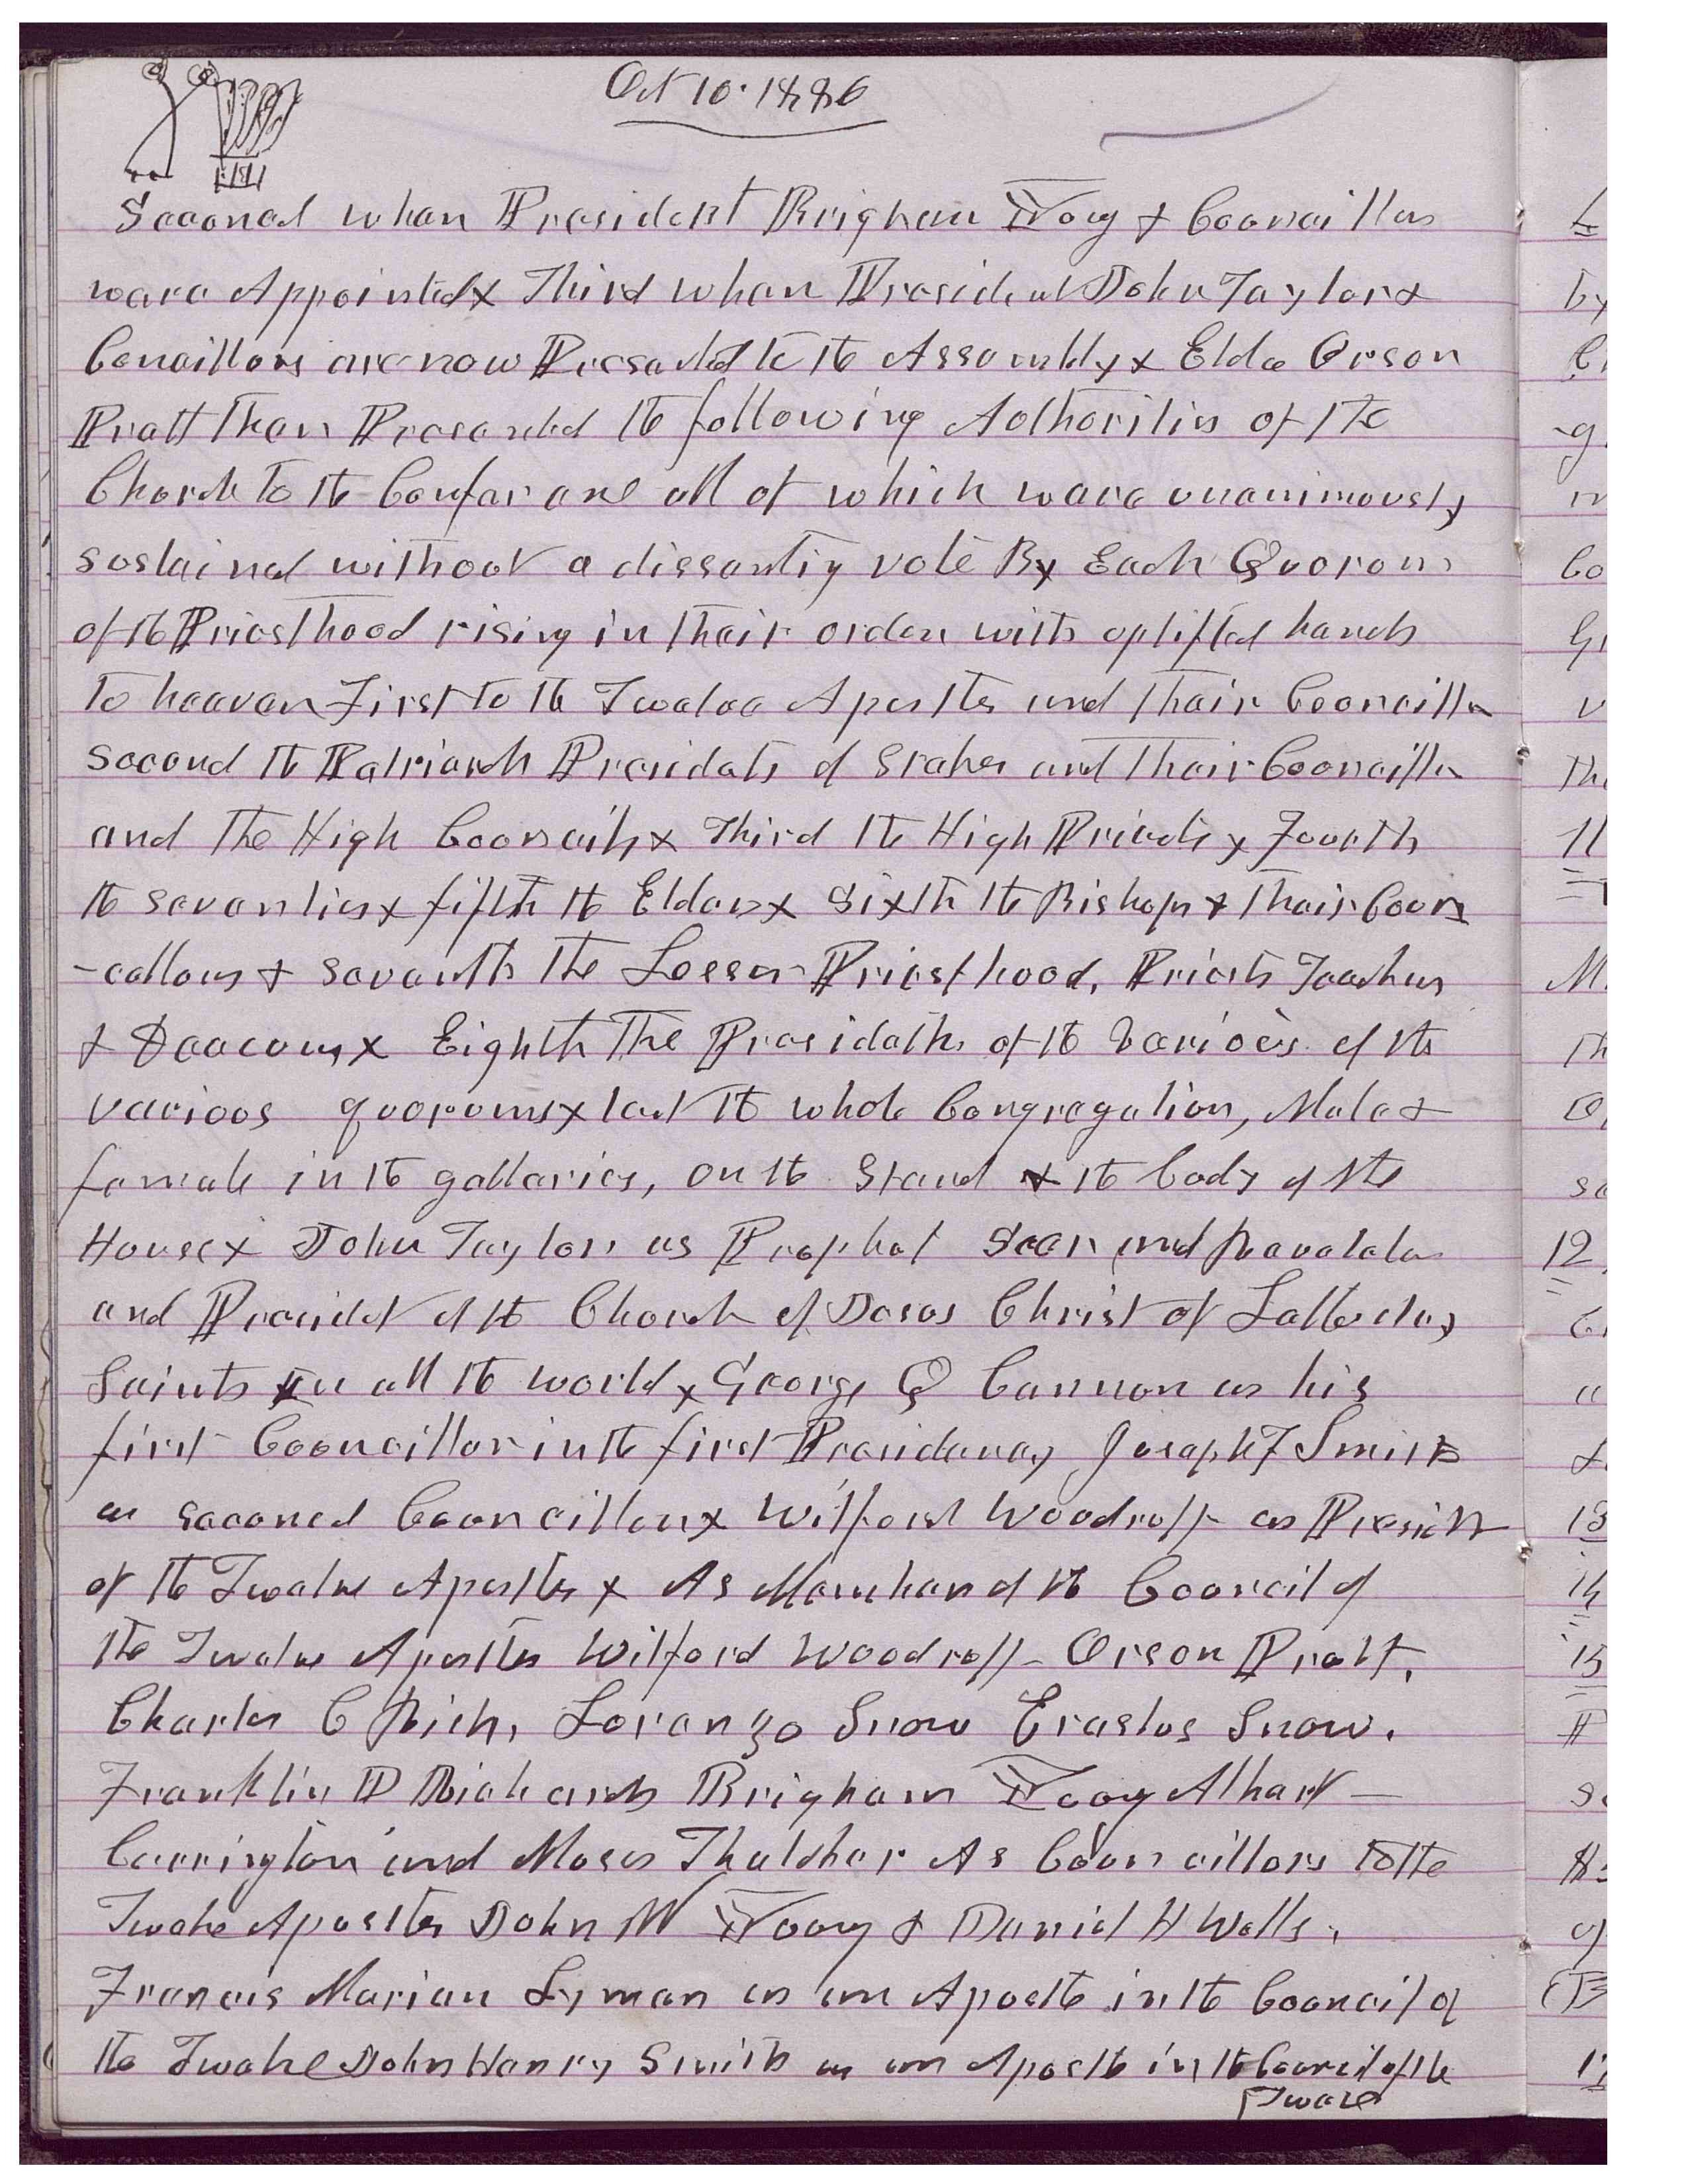 Oct 10. 1880
Second when President Brigham Young & Councillors
were Appointed x Third when President John Taylor &
Concillors are now Presented to the Assembly x Elder Orson
Pratt then Presented the following Authorities of the
Church to the Conference all of which were unanimously
sustained without a dissenting vote By Each Quorum
of the Priesthood rising in their order with uplifted hands
to heaven First to the Twelve Apostles and their Councillors
Second the Patriarch Presidents of Stakes and their Councillors
and the High Councils x Third the High Priests x Fourth
the seventies x fifth the Elders x Sixth the Bishops & their Coun
-cellors & Seventh the Lesser Priesthood, Priests Teachers
& Deacons x Eighth The Presidents of the various of the
various quorums x last the whole Congregation, Male &
female in the galleries, on the Stand & the body of the
House x John Taylor as Prophet Seer and Revelator
and President of the Church of Jesus Christ of Latter day
Saints in all the world x George Q Cannon as his
first Councillor in the first Presidency Joseph F Smith
as second Councillor x Wilford Woodruff as President
of the Twelve Apostles x As Members of the Council of
the Twelve Apostles Wilford Woodruff Orson Pratt.
Charles C Rich, Loranzo Snow Erastus Snow.
Franklin D Richards Brigham Young Albert
Carrington and Moses Thatcher As Councillors to the
Twelve Apostles John W Young & Daniel H Wells.
Francis Marian Lyman as an Apostle in the Council of
the Twelve John Henry Smith as an Apostle in the Council of the
Twelve